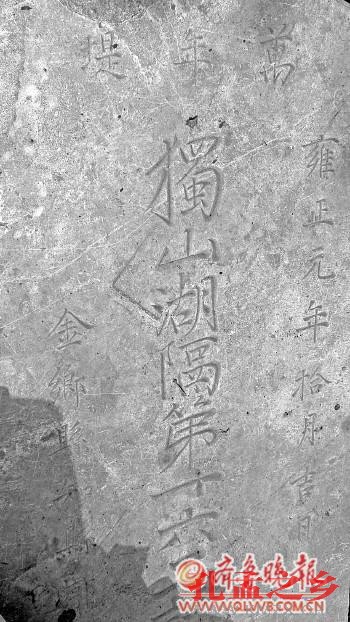 萬年堤
雍正元年拾月吉日
獨山湖隔第十六
金鄉縣
齐鲁晚报
孔孟之乡
WWW.QLWB.COM.CN